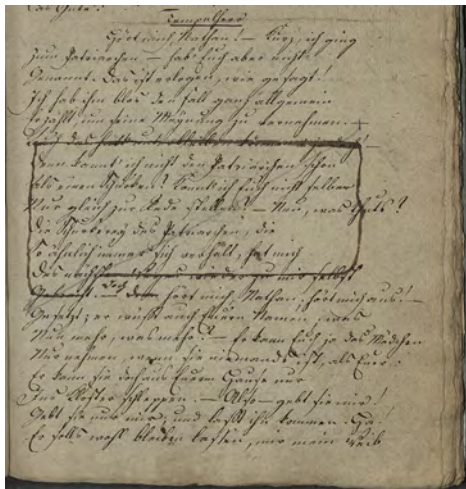 Tempelherr
Hört mich, Nathan! — Kurz, ich ging
zum Patriarchen — hab' Euch aber nicht
Genannt. Das ist erlogen, wie gesagt!
Ich hab ihm blos den Fall ganz allgemein
Erzählt, um seine Meynung zu vernehmen. —
Auch das hätt unterbleiben können:
Denn kannt' ich nicht den Patriarchen schon
Als einen Schurken? Konnt ich Euch nicht selber
Nur gleich zur Rede stellen? — Nun, was thuts?
Die Schurkerey des Patriarchen, die
So ähnlich immer sich erhält, hat mich
Des nächsten wieder zu mir selbst
Gebracht. — Doch hört mich, Nathan; hört mich aus! —
Gesetzt; er wüßt auch Euern Namen, was
Nun mehr, was mehr? — Er kann Euch ja das Mädchen
Nur nehmen, wenn sie niemands ist, als Euer.
Er kann sie doch aus Eurem Hause nur
Ins Kloster schleppen. — Also — gebt sie mir!
Gebt sie nur mir; und laßt ihn kommen. Ha!
Er solls wohl bleiben lassen, mir mein Weib